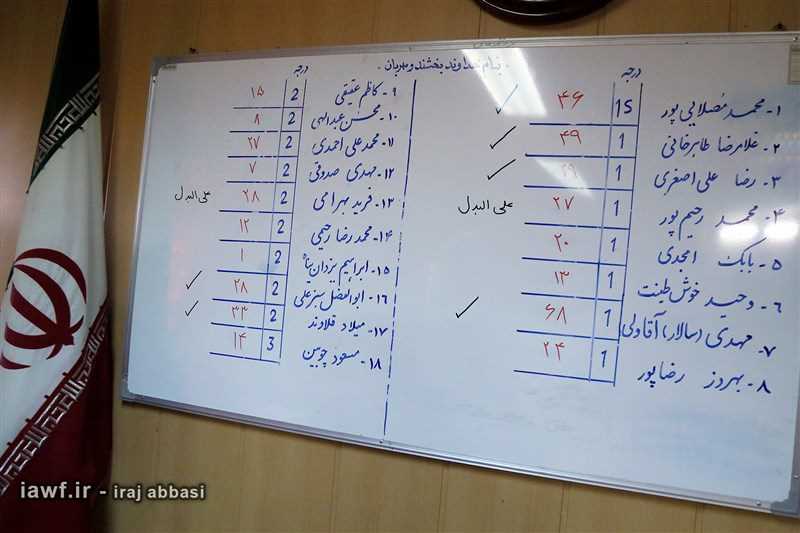 بنام خداوند بخشنده و مهربان
درجه
۱- محمد مصلایی پور 1S ۴۶ ✓
۲- غلامرضا طاهرخانی 1 ۴۹ ✓
۳- رضا علی اصغری 1 ✓
۴- محمد رحیم پور 1 ۲۷ علی البدل
۵- بابک امجدی 1 ۲۰
۶- وحید خوش طینت 1 ۱۳
۷- مهدی (سالار) آقاولی 1 ۶۸ ✓
۸- بهروز رضاپور 1 ۲۴
درجه
۹- کاظم عقیقی 2 ۱۵
۱۰- محسن عبدالهی 2 ۸
۱۱- محمد علی احمدی 2 ۲۷
۱۲- مهدی صدوقی 2 ۷
۱۳- فرید بهرامی 2 ۲۸ علی البدل
۱۴- محمد رضا رحیمی 2 ۱۲
۱۵- ابراهیم یزدان پناه 2 ۱
۱۶- ابوالفضل سبزعلی 2 ۲۸ ✓
۱۷- میلاد قلاوند 2 ۳۳ ✓
۱۸- مسعود چوبین 3 ۱۴
iawf.ir - iraj abbasi